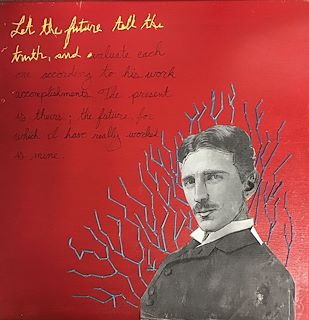 Let the future tell the
truth, and evaluate each
one according to his work
accomplishments. The present
is theirs; the future, for
which I have really worked
is mine.